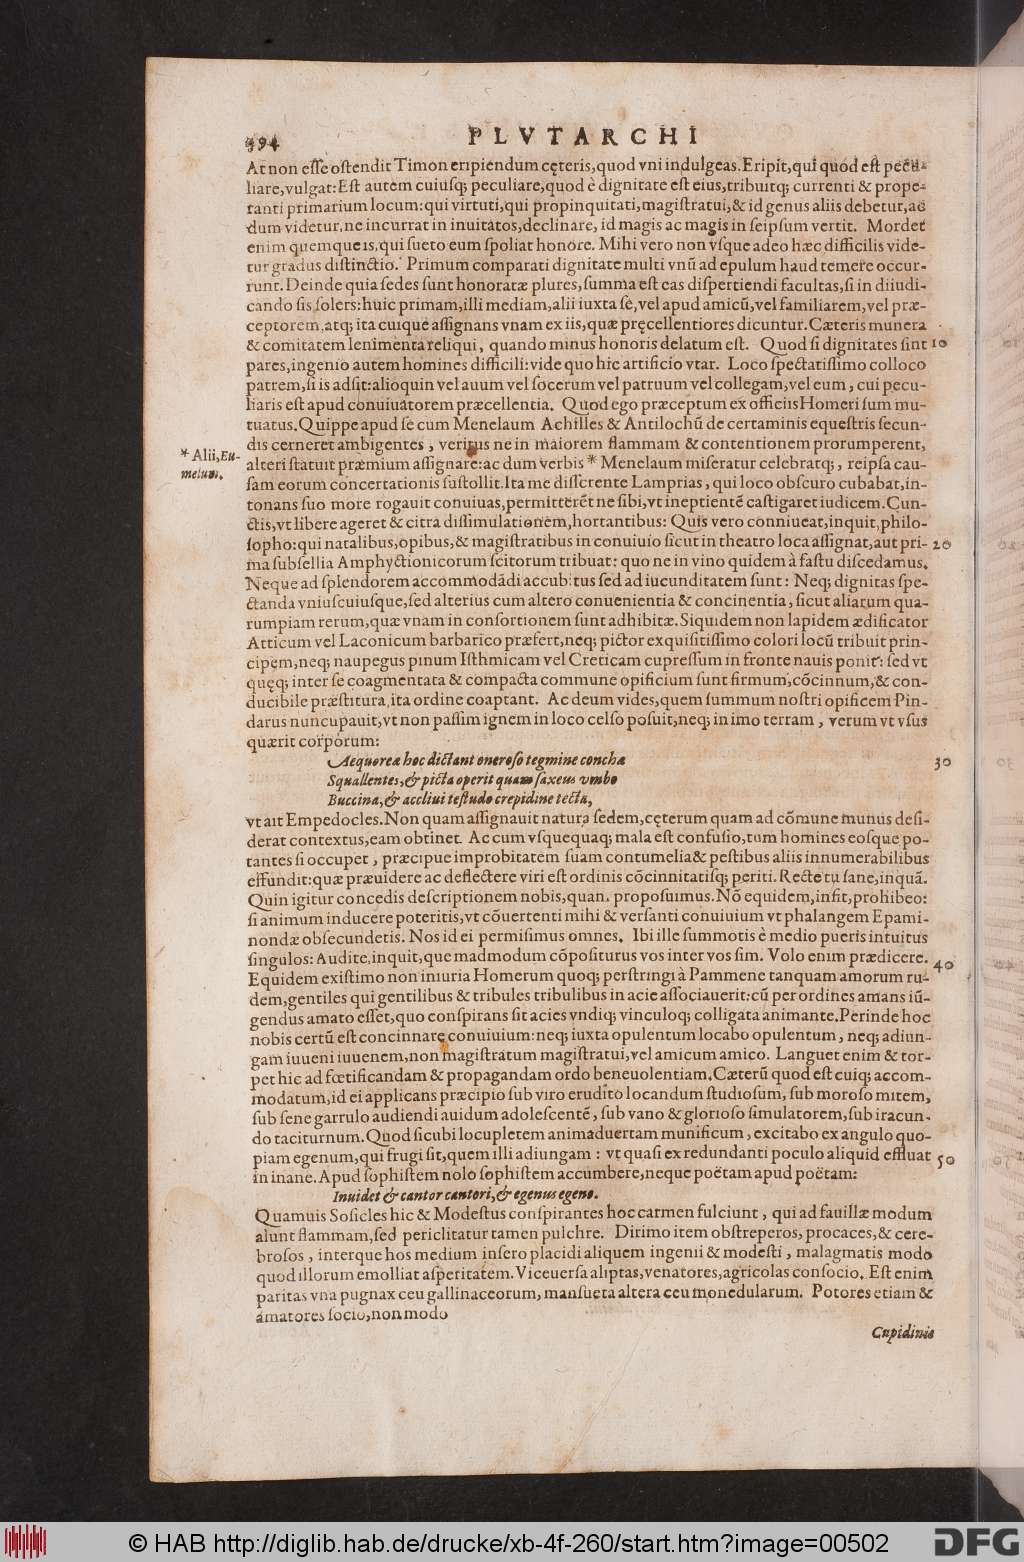 394
PLVTARCHI
At non esse ostendit Timon eripiendum cęteris, quod vni indulgeas. Eripit, qui quod est pecu-
liare, vulgat: Est autem cuiusq; peculiare, quod è dignitate est eius, tribuitq; currenti & prope-
ranti primarium locum: qui virtuti, qui propinquitati, magistratui, & id genus aliis debetur, ac
dum videtur, ne incurrat in inuitatos, declinare, id magis ac magis in seipsum vertit. Mordet
enim quemque is, qui sueto eum spoliat honore. Mihi vero non vsque adeo hæc difficilis vide-
tur gradus distinctio. Primum comparati dignitate multi vnũ ad epulum haud temere occur-
runt. Deinde quia sedes sunt honoratæ plures, summa est eas dispertiendi facultas, si in diiudi-
cando sis solers: huic primam, illi mediam, alii iuxta se, vel apud amicũ, vel familiarem, vel præ-
ceptorem, atq; ita cuique assignans vnam ex iis, quæ pręcellentiores dicuntur. Cæteris munera
& comitatem lenimenta reliqui, quando minus honoris delatum est. Quod si dignitates sint 10
pares, ingenio autem homines difficili: vide quo hic artificio vtar. Loco spectatissimo colloco
patrem, si is adsit: alioquin vel auum vel socerum vel patruum vel collegam, vel eum, cui pecu-
liaris est apud conuiuatorem præcellentia. Quod ego præceptum ex officiis Homeri sum mu-
tuatus. Quippe apud se cum Menelaum Achilles & Antilochũ de certaminis equestris secun-
dis cerneret ambigentes, veritus ne in maiorem flammam & contentionem prorumperent,
* Alii, Eu-
melum.
alteri statuit præmium assignare: ac dum verbis * Menelaum miseratur celebratq;, reipsa cau-
sam eorum concertationis sustollit. Ita me disserente Lamprias, qui loco obscuro cubabat, in-
tonans suo more rogauit conuiuas, permitterẽt ne sibi, vt ineptientẽ castigaret iudicem. Cun-
ctis, vt libere ageret & citra dissimulationem, hortantibus: Quis vero conniueat, inquit, philo-
sopho: qui natalibus, opibus, & magistratibus in conuiuio sicut in theatro loca assignat, aut pri- 20
ma subsellia Amphyctionicorum scitorum tribuat: quo ne in vino quidem à fastu discedamus.
Neque ad splendorem accommodãdi accubitus sed ad iucunditatem sunt: Neq; dignitas spe-
ctanda vniuscuiusque, sed alterius cum altero conuenientia & concinentia, sicut aliarum qua-
rumpiam rerum, quæ vnam in consortionem sunt adhibitæ. Siquidem non lapidem ædificator
Atticum vel Laconicum barbarico præfert, neq; pictor exquisitissimo colori locũ tribuit prin-
cipem, neq; naupegus pinum Isthmicam vel Creticam cupressum in fronte nauis ponit: sed vt
quęq; inter se coagmentata & compacta commune opificium sunt firmum, cõcinnum, & con-
ducibile præstitura, ita ordine coaptant. Ac deum vides, quem summum nostri opificem Pin-
darus nuncupauit, vt non passim ignem in loco celso posuit, neq; in imo terram, verum vt vsus
quærit corporum:
Aequorea hoc dictant oneroso tegmine concha 30
Squallentes, & picta operit quam saxeus vmbo
Buccina, & accliui testudo crepidine tecta,
vt ait Empedocles. Non quam assignauit natura sedem, cęterum quam ad cõmune munus desi-
derat contextus, eam obtinet. Ac cum vsquequaq; mala est confusio, tum homines eosque po-
tantes si occupet, præcipue improbitatem suam contumelia & pestibus aliis innumerabilibus
effundit: quæ præuidere ac deflectere viri est ordinis cõcinnitatisq; periti. Recte tu sane, inquã.
Quin igitur concedis descriptionem nobis, quan. proposuimus. Nõ equidem, infit, prohibeo:
si animum inducere poteritis, vt cõuertenti mihi & versanti conuiuium vt phalangem Epami-
nondæ obsecundetis. Nos id ei permisimus omnes. Ibi ille summotis è medio pueris intuitus
singulos: Audite, inquit, que madmodum cõpositurus vos inter vos sim. Volo enim prædicere. 40
Equidem existimo non iniuria Homerum quoq; perstringi à Pammene tanquam amorum ru-
dem, gentiles qui gentilibus & tribules tribulibus in acie associauerit: cũ per ordines amans iũ-
gendus amato esset, quo conspirans sit acies vndiq; vinculoq; colligata animante. Perinde hoc
nobis certũ est concinnare conuiuium: neq; iuxta opulentum locabo opulentum, neq; adiun-
gam iuueni iuuenem, non magistratum magistratui, vel amicum amico. Languet enim & tor-
pet hic ad fœtificandam & propagandam ordo beneuolentiam. Cæterũ quod est cuiq; accom-
modatum, id ei applicans præcipio sub viro erudito locandum studiosum, sub moroso mitem,
sub sene garrulo audiendi auidum adolescentẽ, sub vano & glorioso simulatorem, sub iracun-
do taciturnum. Quod sicubi locupletem animaduertam munificum, excitabo ex angulo quo-
piam egenum, qui frugi sit, quem illi adiungam: vt quasi ex redundanti poculo aliquid effluat 50
in inane. Apud sophistem nolo sophistem accumbere, neque poëtam apud poëtam:
Inuidet & cantor cantori, & egenus egeno.
Quamuis Sosicles hic & Modestus conspirantes hoc carmen fulciunt, qui ad fauillæ modum
alunt flammam, sed periclitatur tamen pulchre. Dirimo item obstreperos, procaces, & cere-
brosos, interque hos medium insero placidi aliquem ingenii & modesti, malagmatis modo
quod illorum emolliat asperitatem. Viceuersa aliptas, venatores, agricolas consocio. Est enim
paritas vna pugnax ceu gallinaceorum, mansueta altera ceu monedularum. Potores etiam &
amatores socio, non modo
Cupidinis
© HAB http://diglib.hab.de/drucke/xb-4f-260/start.htm?image=00502
DFG